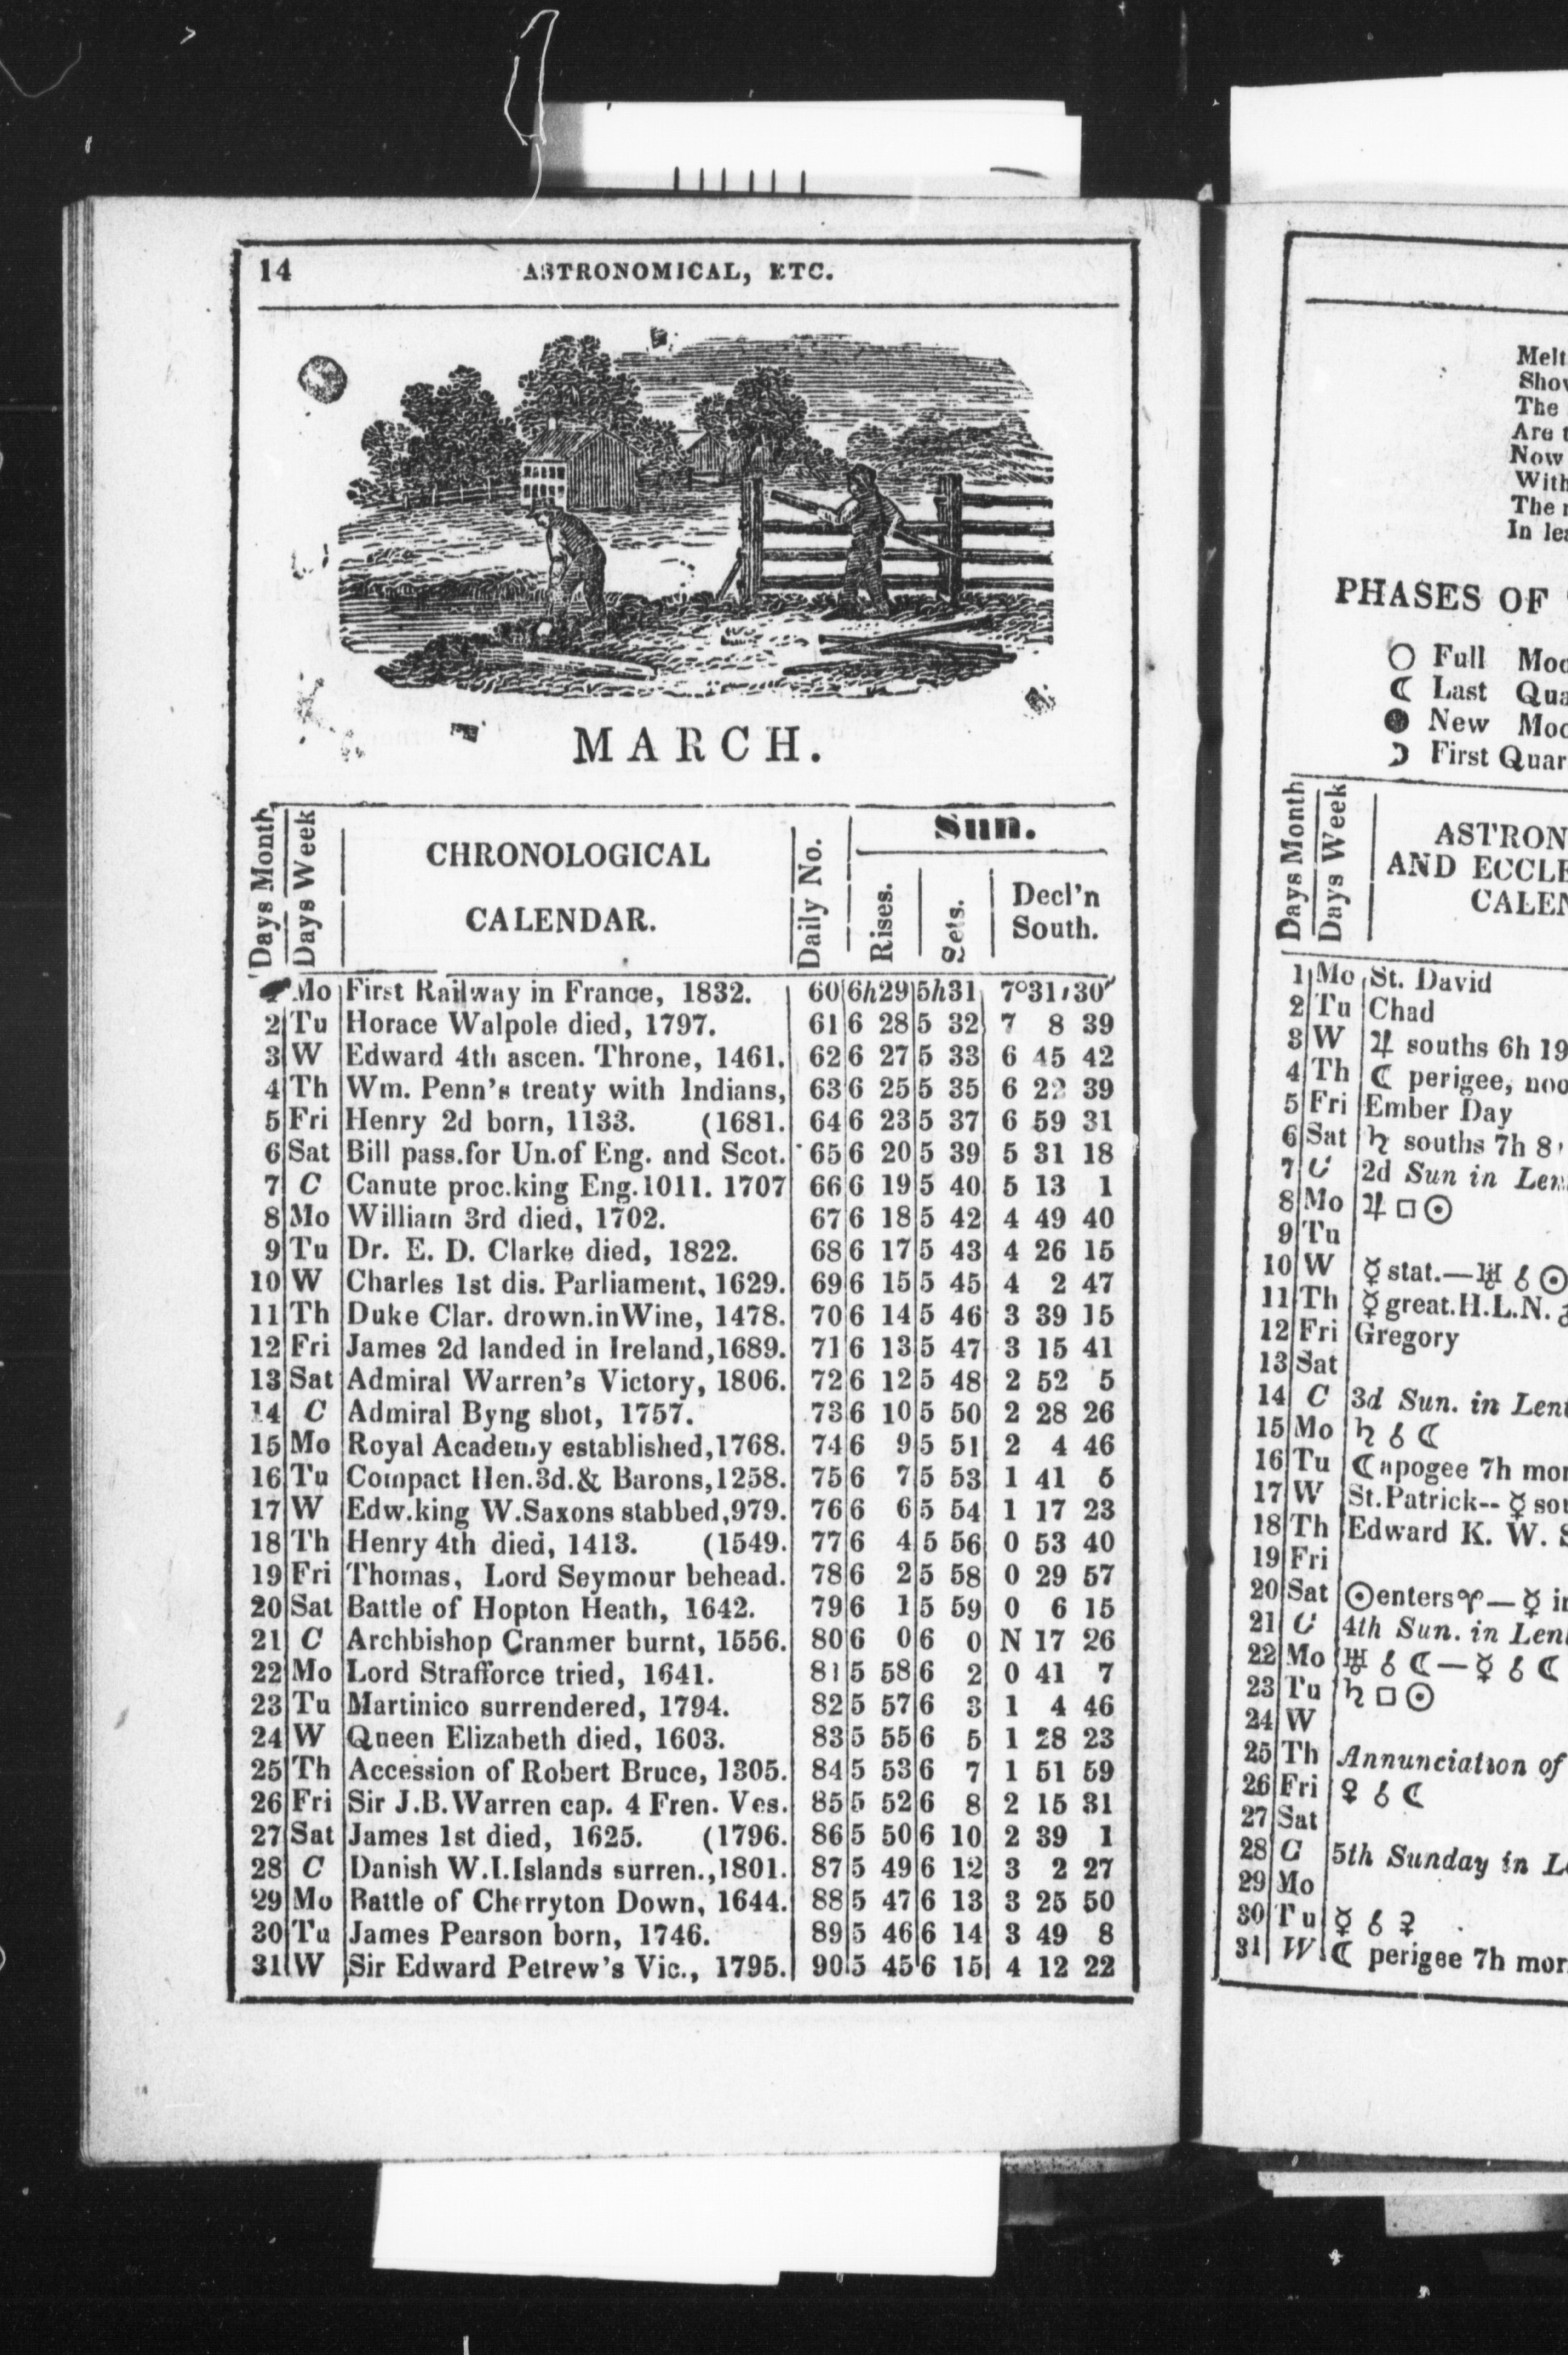 14 ASTRONOMICAL, ETC.
MARCH.
Days Month
Days Week
CHRONOLOGICAL
CALENDAR.
Daily No.
Sun.
Rises.
Sets.
Decl'n
South.
Mo First Railway in France, 1832. 60 6h29 5h31 7°31′30″
2 Tu Horace Walpole died, 1797. 61 6 28 5 32 7 8 39
3 W Edward 4th ascen. Throne, 1461. 62 6 27 5 33 6 45 42
4 Th Wm. Penn's treaty with Indians, 63 6 25 5 35 6 22 39
5 Fri Henry 2d born, 1133. (1681. 64 6 23 5 37 6 59 31
6 Sat Bill pass.for Un.of Eng. and Scot. 65 6 20 5 39 5 31 18
7 C Canute proc.king Eng.1011. 1707 66 6 19 5 40 5 13 1
8 Mo William 3rd died, 1702. 67 6 18 5 42 4 49 40
9 Tu Dr. E. D. Clarke died, 1822. 68 6 17 5 43 4 26 15
10 W Charles 1st dis. Parliament, 1629. 69 6 15 5 45 4 2 47
11 Th Duke Clar. drown.inWine, 1478. 70 6 14 5 46 3 39 15
12 Fri James 2d landed in Ireland,1689. 71 6 13 5 47 3 15 41
13 Sat Admiral Warren's Victory, 1806. 72 6 12 5 48 2 52 5
14 C Admiral Byng shot, 1757. 73 6 10 5 50 2 28 26
15 Mo Royal Academy established,1768. 74 6 9 5 51 2 4 46
16 Tu Compact Hen.3d.& Barons,1258. 75 6 7 5 53 1 41 6
17 W Edw.king W.Saxons stabbed,979. 76 6 6 5 54 1 17 23
18 Th Henry 4th died, 1413. (1549. 77 6 4 5 56 0 53 40
19 Fri Thomas, Lord Seymour behead. 78 6 2 5 58 0 29 57
20 Sat Battle of Hopton Heath, 1642. 79 6 1 5 59 0 6 15
21 C Archbishop Cranmer burnt, 1556. 80 6 0 6 0 N 17 26
22 Mo Lord Strafforce tried, 1641. 81 5 58 6 2 0 41 7
23 Tu Martinico surrendered, 1794. 82 5 57 6 3 1 4 46
24 W Queen Elizabeth died, 1603. 83 5 55 6 5 1 28 23
25 Th Accession of Robert Bruce, 1305. 84 5 53 6 7 1 51 59
26 Fri Sir J.B.Warren cap. 4 Fren. Ves. 85 5 52 6 8 2 15 31
27 Sat James 1st died, 1625. (1796. 86 5 50 6 10 2 39 1
28 C Danish W.I.Islands surren.,1801. 87 5 49 6 12 3 2 27
29 Mo Battle of Cherryton Down, 1644. 88 5 47 6 13 3 25 50
30 Tu James Pearson born, 1746. 89 5 46 6 14 3 49 8
31 W Sir Edward Petrew's Vic., 1795. 90 5 45 6 15 4 12 22
Melt
Show
The
Are t
Now
With
The
In lea
PHASES OF
○ Full Moo
☾ Last Qua
● New Moo
☽ First Quar
Days Month
Days Week
ASTRON
AND ECCLE
CALEN
1 Mo St. David
2 Tu Chad
3 W ♃ souths 6h 19
4 Th ☾ perigee, noo
5 Fri Ember Day
6 Sat ♄ souths 7h 8
7 C 2d Sun in Len
8 Mo ♃ □ ☉
9 Tu
10 W ☿ stat.—♅ ☌ ☉
11 Th ☿ great.H.L.N.
12 Fri Gregory
13 Sat
14 C 3d Sun. in Lent
15 Mo ♄ ☌ ☾
16 Tu ☾ apogee 7h mor
17 W St.Patrick-- ☿ sou
18 Th Edward K. W. S
19 Fri
20 Sat ☉enters♈—☿ in
21 C 4th Sun. in Lent
22 Mo ♅ ☌ ☾—☿ ☌ ☾
23 Tu ♄ □ ☉
24 W
25 Th Annunciation of
26 Fri ♀ ☌ ☾
27 Sat
28 C 5th Sunday in Le
29 Mo
30 Tu ☿ ☌ ⚳
31 W ☾ perigee 7h mor